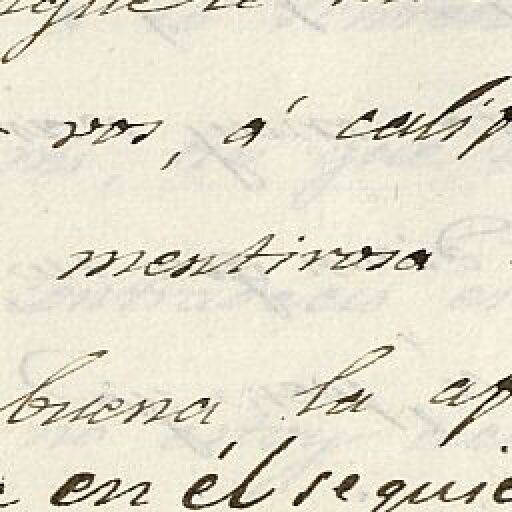 vos, á calif
mentirosa
buena la ap
en él se quie